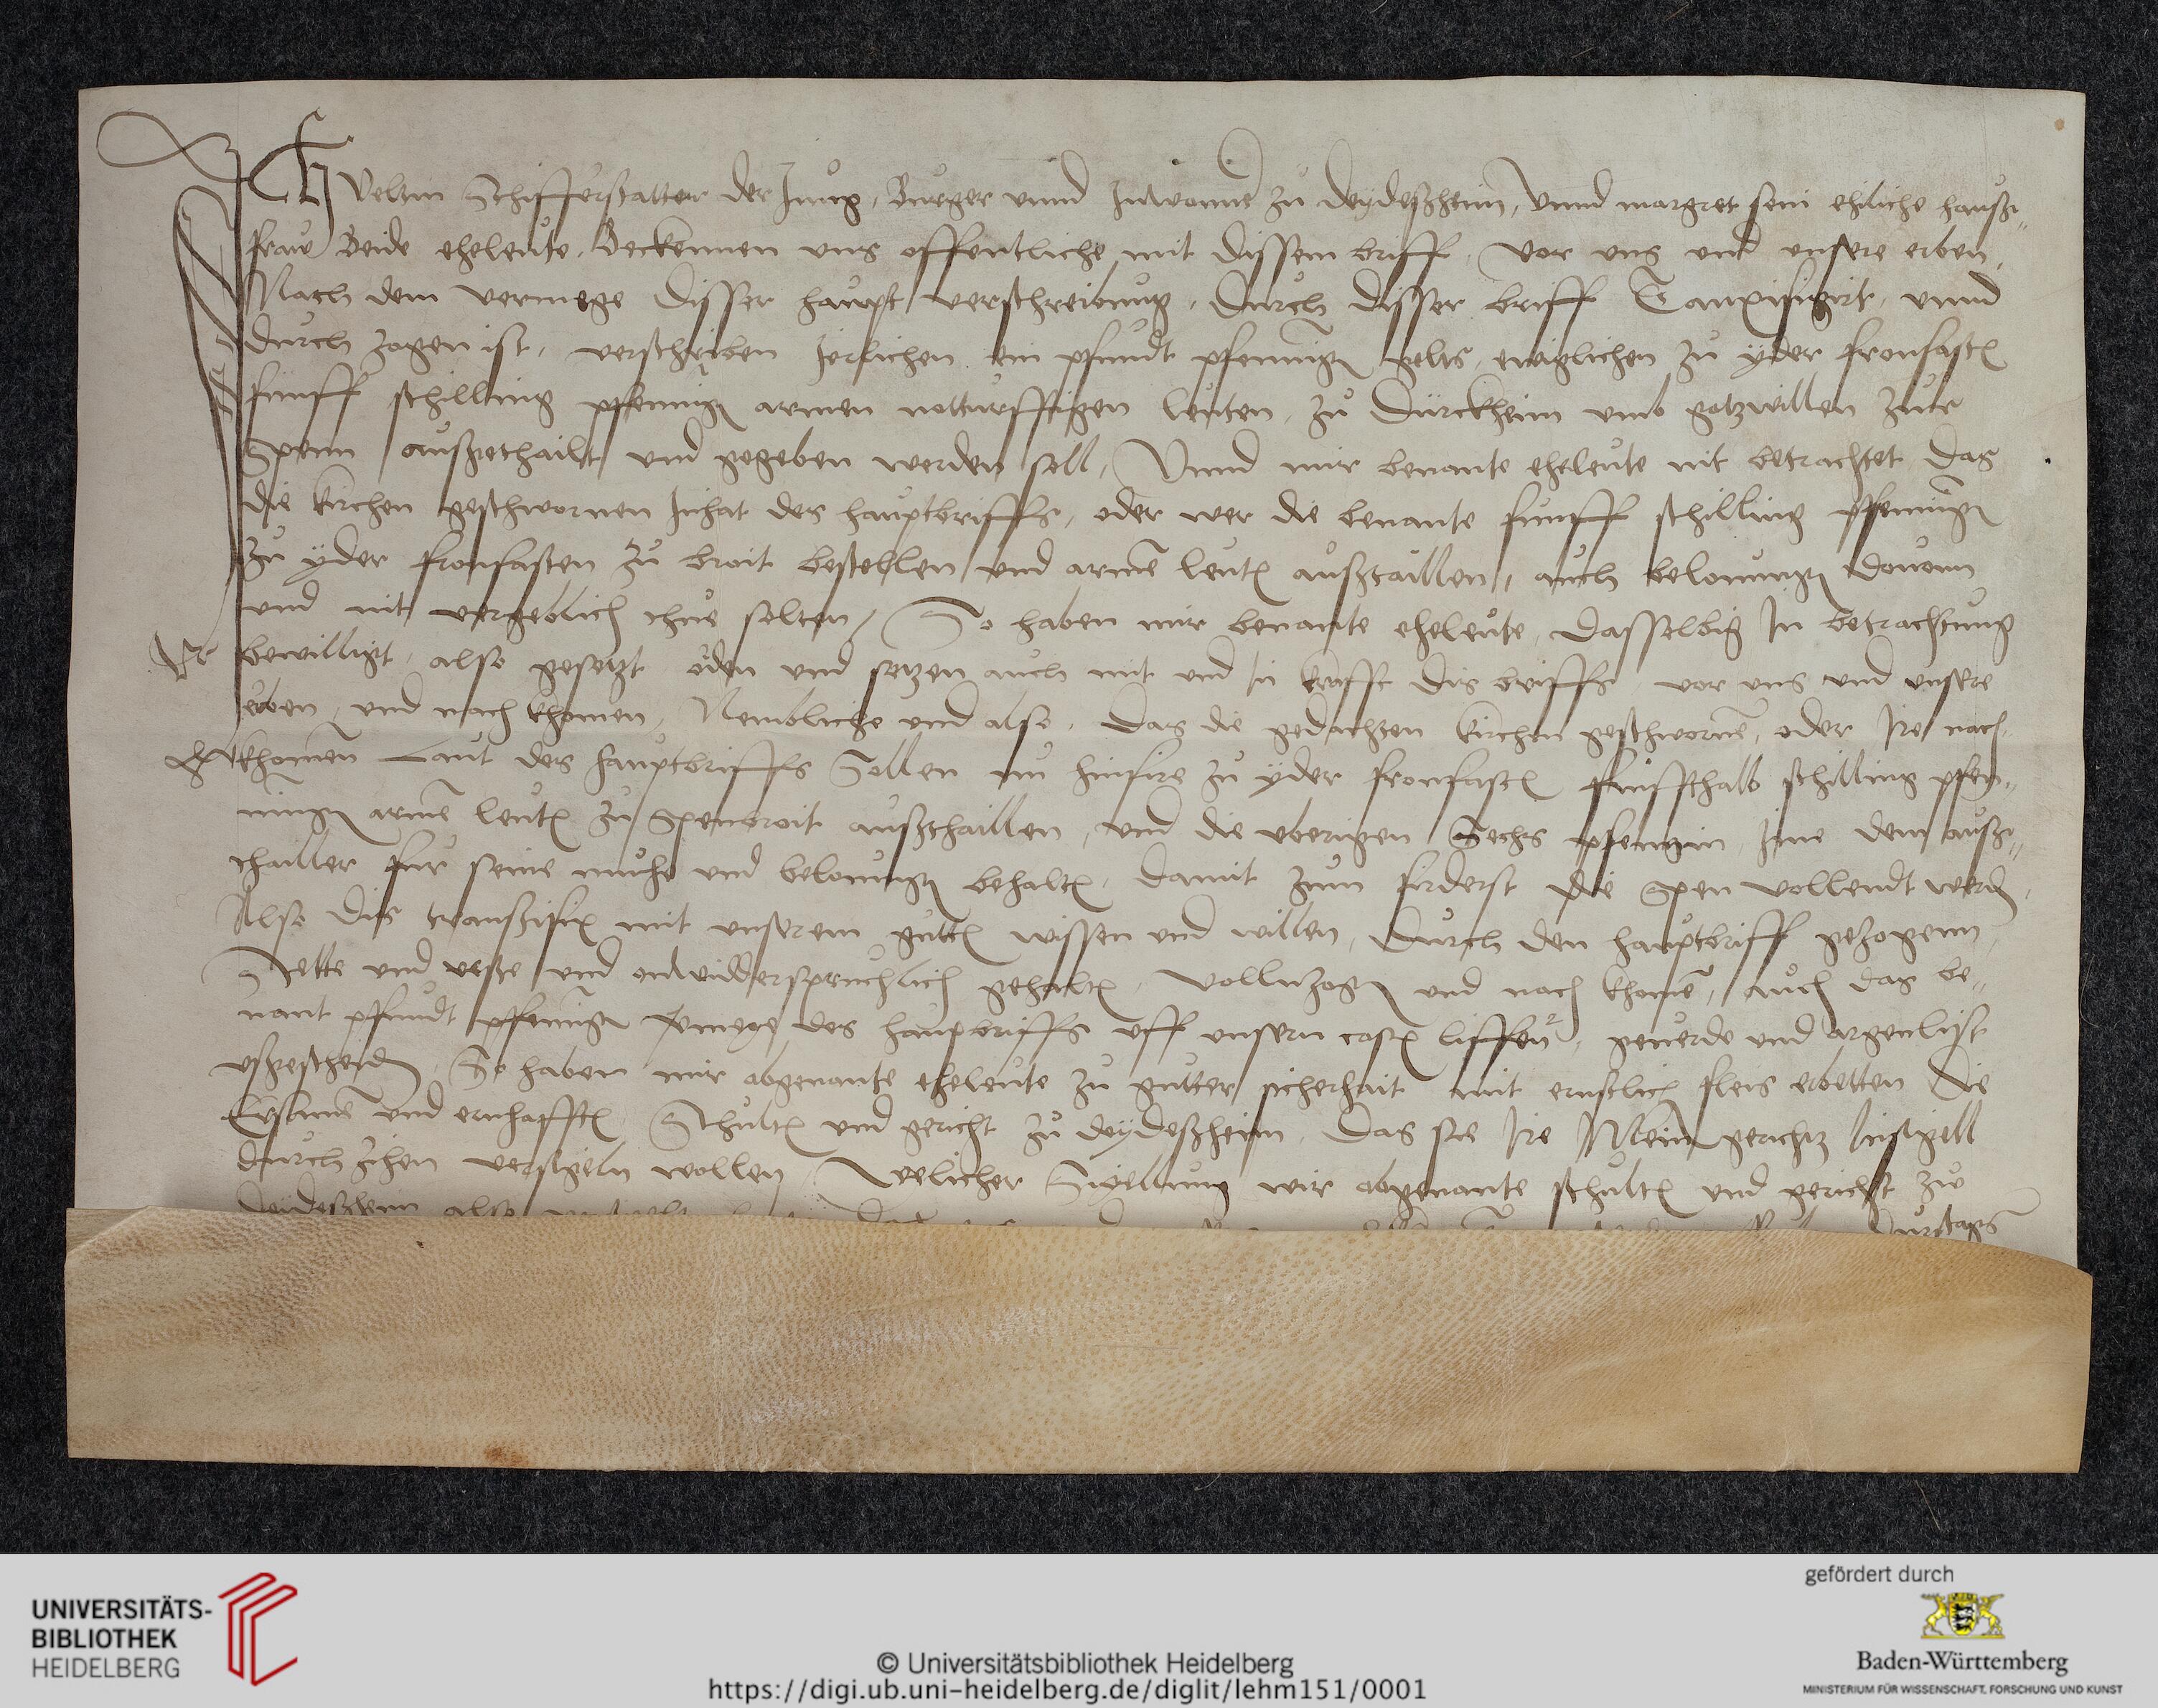 ICH Veltin Schifferstatter der Jung, Burger vnnd Inwonner zů Deydeßheim, Vnnd margret sein ehliche hauß„
fraw Beide eheleůte, Beckennen vns offentliche mit dissem briff, vor vns vnd vnsere erben,
Nach dem vermege disser haupt verschreibung, durch disser briff Tranxifigirt, vnnd
durch zogen ist, verschriben Jerlichen ein pfundt pfenning gelts, ewiglichen zů yder fronfasten
funff schilling pfenning armen notturfftigen leůten, zů Dürckheim vmb gotzwillen zur
Spenn außgethailt vnd gegeben werden soll, Vnnd mir benante eheleůte nit betrachtet das
die kirchen geschwornen Inhat des hauptbriffs, oder wer die benante funff schilling pfenning
zů yder fronfasten zů broit bestellen vnd arme leut außtaillen, auch belonung dovonn
vnd nit vergeblich thue solten, So haben mir benante eheleůte, dasselbig In betrachtung
bewilligt, also gesetzt, oden vnd setzen auch mit vnd In krafft dis briffs, vor vns vnd vnsere
erben, vnd nach khomen, Nembliche vnd also, das die gedachten kirchen geschworne, oder Ire nach
khomen Laut des hauptbriffs Sollen nu hinfire zů yder fronfasten fünffthalb schilling pfen„
ning arme leut zů Spenbroit außthaillen, vnd die vberigen Sechs pfenngin, Ime dem auß„
thailler fur seine muhe vnd belonung behalten, damit zum firderst die Spen vollendt werd,
Also dis transfix mit vnserem gutten wissen vnd willen, durch den hauptbriff gezogenn,
Stette vnd veste vnd onwiddersprechlich gehalten, vollnzogen vnd nach khome, auch das be„
nant pfundt pfenning vermege des hauptbriffs vff vnsern costen liffern, geuerde vnd argenlist
vßgescheiden, So haben mir abgenante eheleute zů gutter sicherhait mit ernstlich fleis erbetten die
Ersame vnd ernhafften Schulten vnd gericht zů Deydeßheim, das sie Ire Klein gerichtz Insigell
durch zihen versigeln wollen, Welicher Sigellung wir abgenante schulten vnd gericht zů
Deideßheim also
UNIVERSITÄTS-
BIBLIOTHEK
HEIDELBERG
© Universitätsbibliothek Heidelberg
https://digi.ub.uni-heidelberg.de/diglit/lehm151/0001
gefördert durch
Baden-Württemberg
MINISTERIUM FÜR WISSENSCHAFT, FORSCHUNG UND KUNST